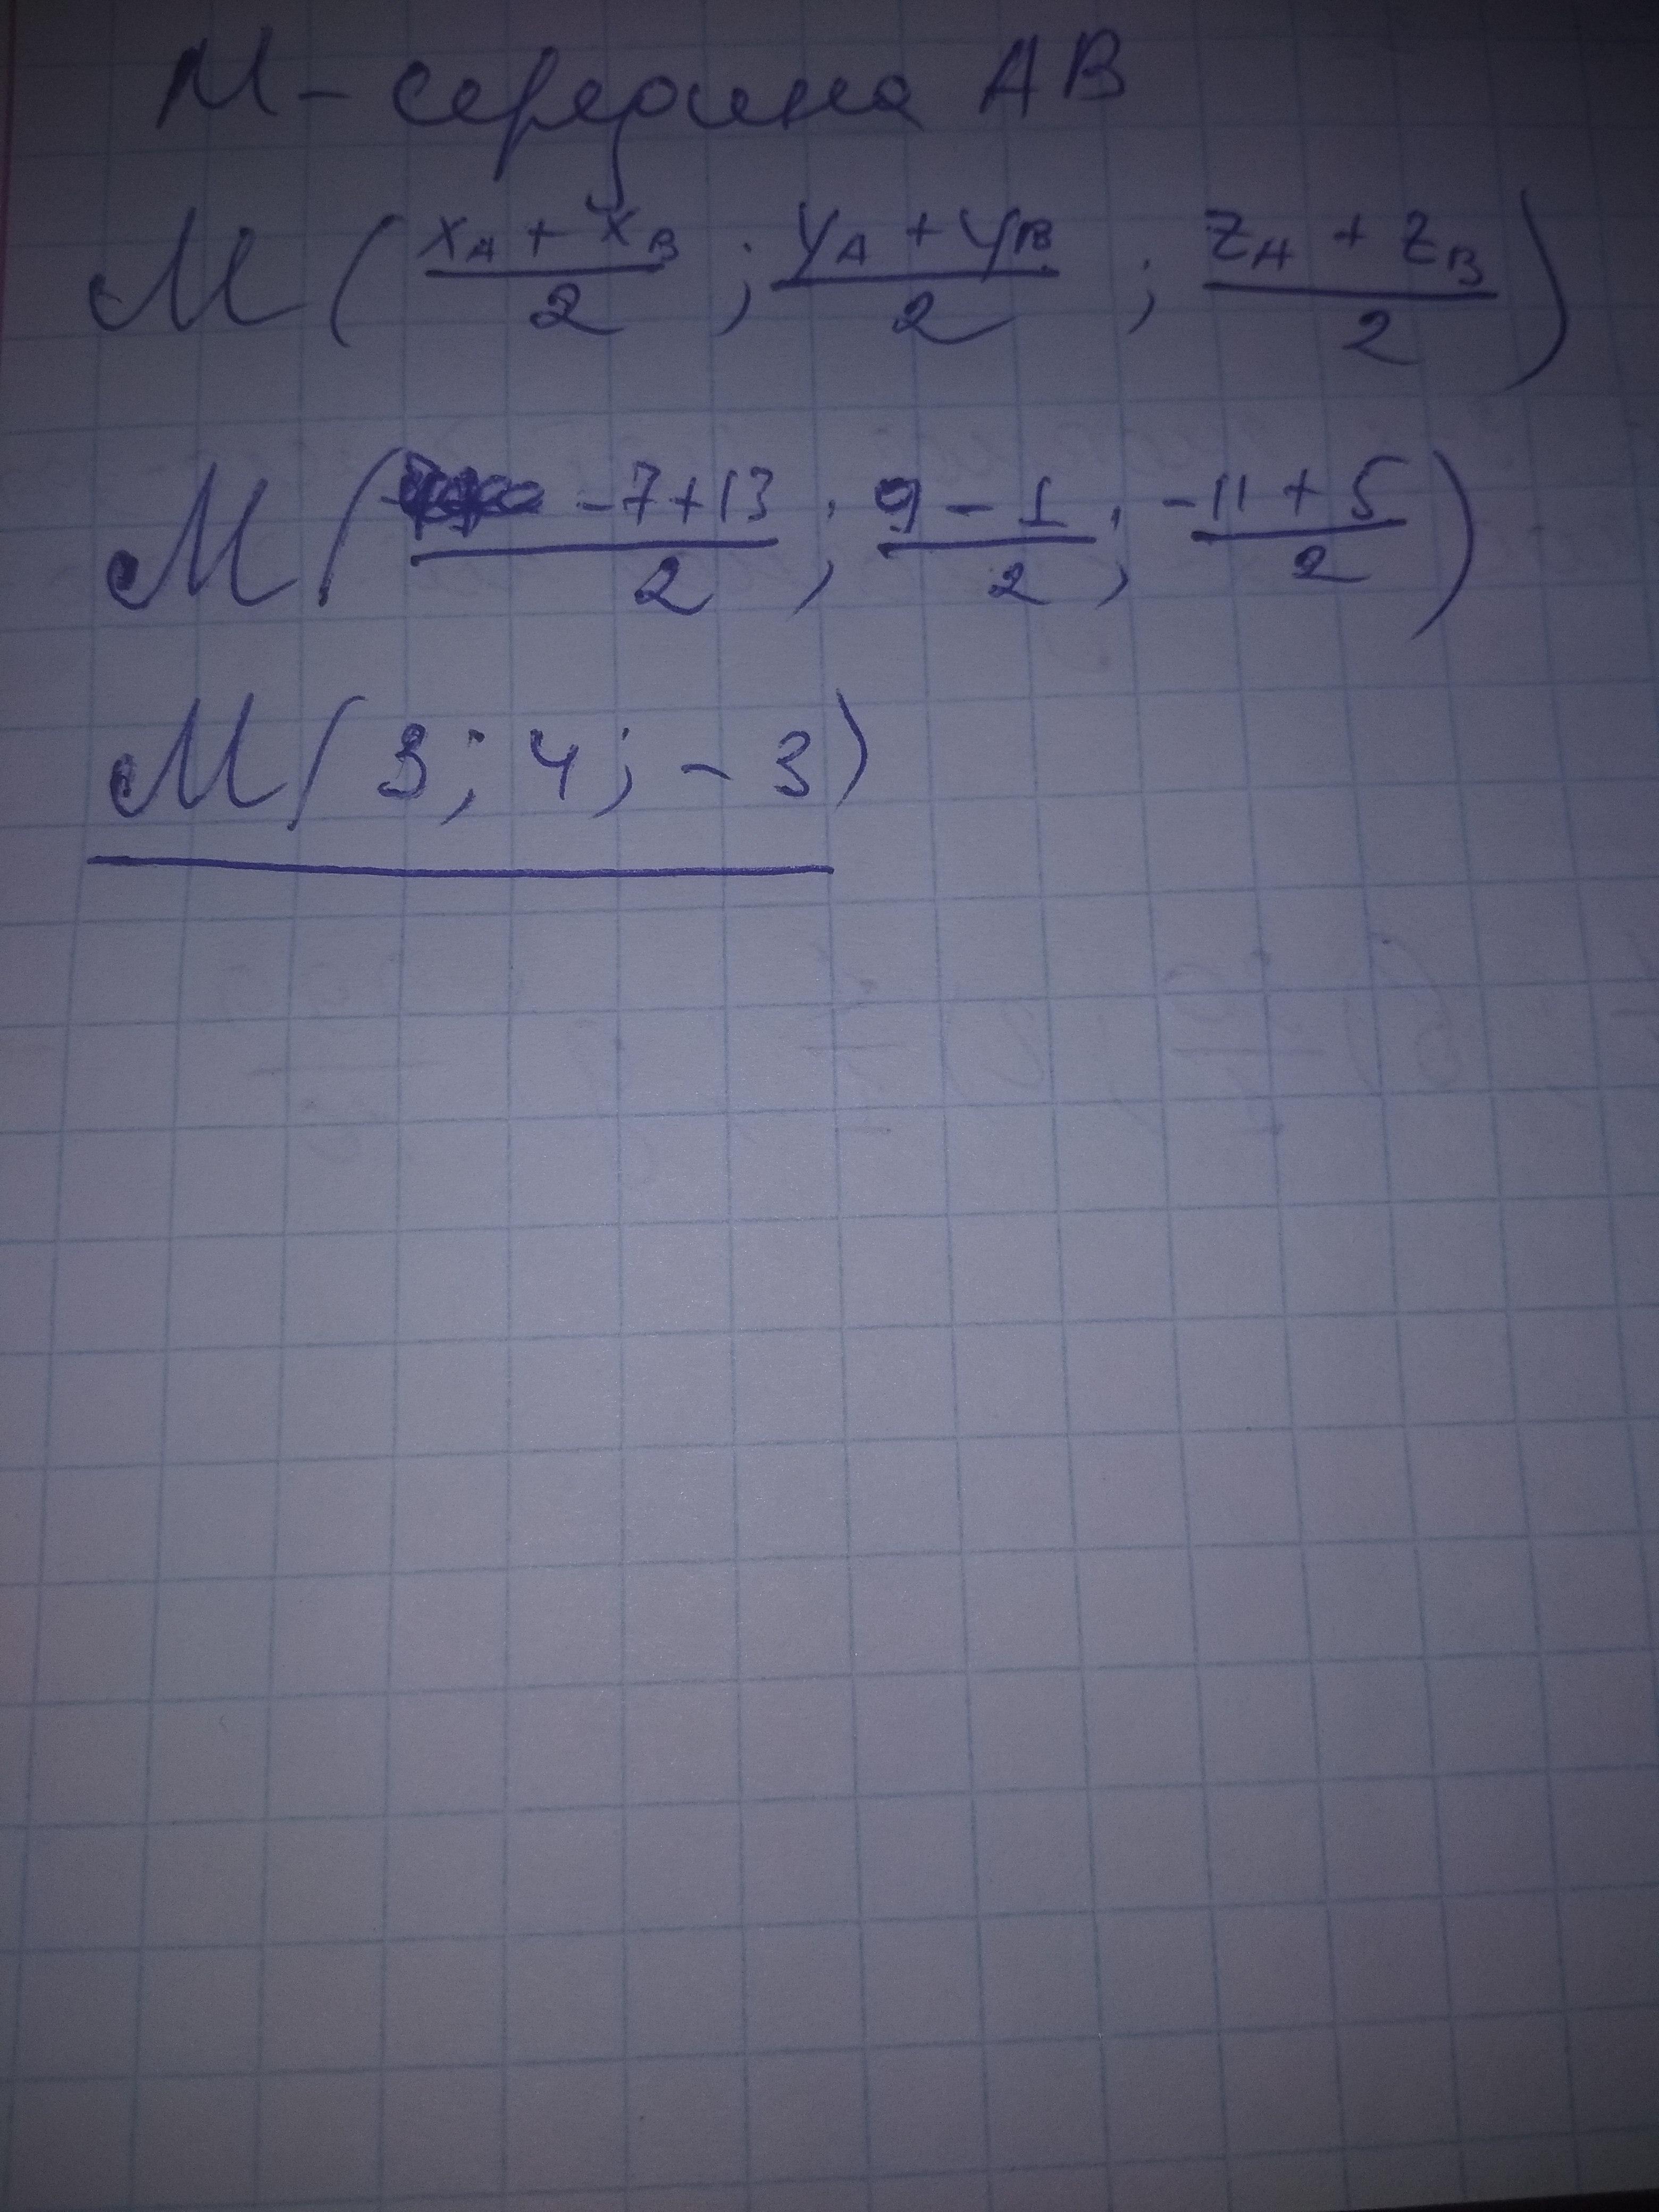 M - середина AB
M ( (x_A + x_B)/2 ; (y_A + y_B)/2 ; (z_A + z_B)/2 )
M ( (-7+13)/2 ; (9-1)/2 ; (-11+5)/2 )
M ( 3; 4; -3)